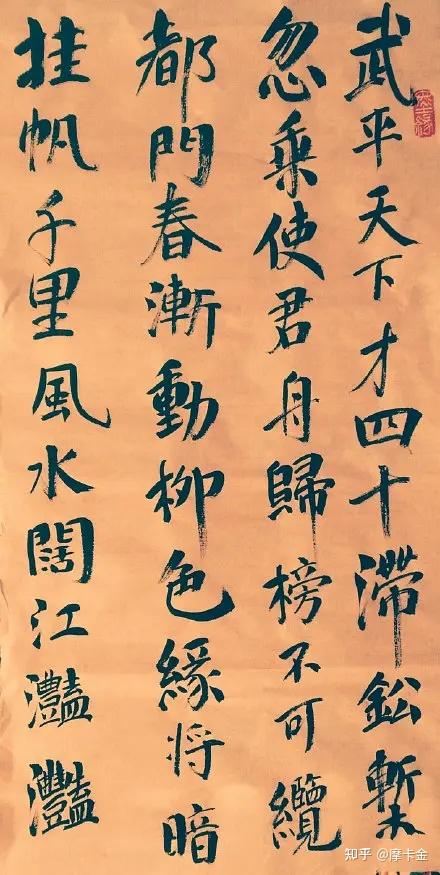 武平天下才四十滯鈆槧
忽乘使君舟歸榜不可纜
都門春漸動柳色緣将暗
挂帆千里風水闊江灩灩
知乎 @摩卡金